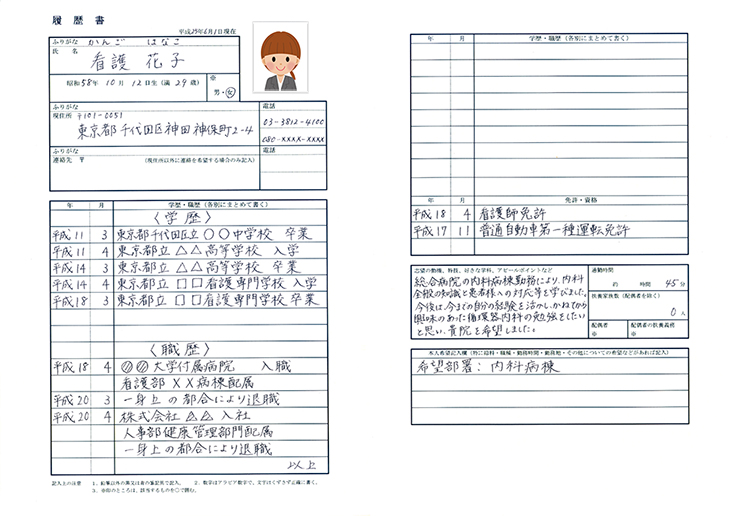 履歴書
平成25年6月1日現在
ふりがな かんご はなこ
氏名
看護 花子
昭和58年10月12日生(満29歳)
※
男・女
ふりがな
電話
現住所 〒101-0051
東京都千代田区神田神保町2-4
03-3812-4100
080-xxxx-xxxx
ふりがな
電話
連絡先 〒
(現住所以外に連絡を希望する場合のみ記入)
年 月 学歴・職歴(各別にまとめて書く)
〈学歴〉
平成11 3 東京都千代田区立○○中学校 卒業
平成11 4 東京都立△△高等学校 入学
平成14 3 東京都立△△高等学校 卒業
平成14 4 東京都立□□看護専門学校 入学
平成18 3 東京都立□□看護専門学校 卒業
〈職歴〉
平成18 4 ◎◎大学付属病院 入職
看護部××病棟配属
平成20 3 一身上の都合により退職
平成20 4 株式会社△△入社
人事部健康管理部門配属
一身上の都合により退職
以上
記入上の注意 1、鉛筆以外の黒又は青の筆記具で記入。 2、数字はアラビア数字で、文字はくずさず正確に書く。
3、※印のところは、該当するものを○で囲む。
年 月 学歴・職歴(各別にまとめて書く)
年 月 免許・資格
平成18 4 看護師免許
平成17 11 普通自動車第一種運転免許
志望の動機、特技、好きな学科、アピールポイントなど
総合病院の内科病棟勤務により、内科
全般の知識と患者様への対応等を学びました。
今後は、今までの自分の経験を活かし、かねてから
興味のあった循環器内科の勉強をしたい
と思い、貴院を希望しました。
通勤時間
約 時間 45分
扶養家族数(配偶者を除く)
0人
配偶者
※
配偶者の扶養義務
※
本人希望記入欄(特に給料・職種・勤務時間・勤務地・その他についての希望などがあれば記入)
希望部署:内科病棟